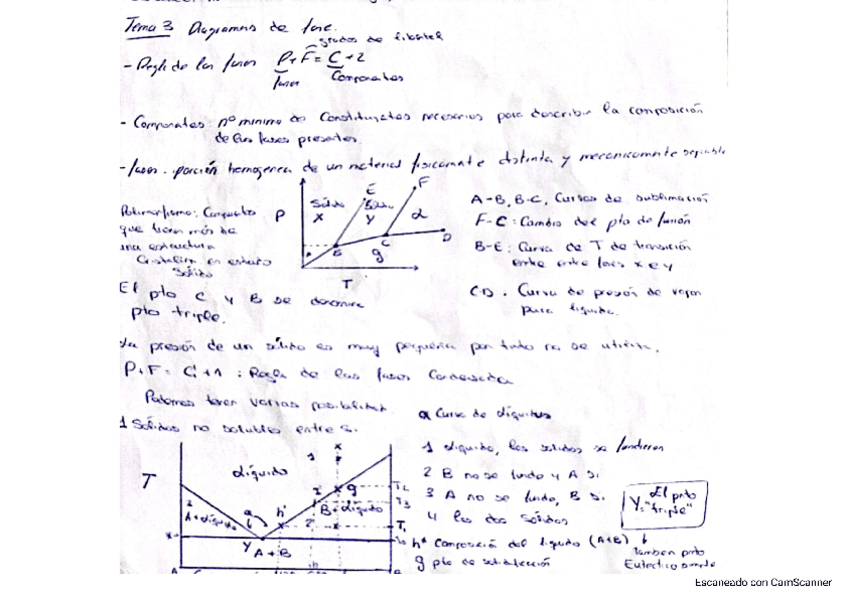 Tema 3 Diagramas de fase.
grados de libertad
- Regla de las fases P+F = C+2
fases Componentes
- Componentes: nº minimo de Constituyentes necesarios para describir la composición
de las fases presentes.
- fases: porción homogenea de un material fisicamente distinta y mecanicamente separable
Polimorfismo: Compuesto
que tienen más de
una estructura
Cristalina en estado
Solido
P
Sólido
X
E
Sólido
Y
F
L
B
C
D
g
T
A-B, B-C, Curvas de sublimación
F-C: Cambio del pto de fusión
B-E: Curva de T de transición
entre entre fases x e y
C-D: Curva de presión de vapor
para liquido.
El pto C y B se denomina
pto triple.
La presión de un sólido es muy pequeña por tanto no se utiliza.
P+F = C+1 : Regla de las fases Condensada
Podemos tener varias posibilidades
1 Sólidos no solubles entre si.
a Curva de líquidus
T
líquido
1
x
P
2
A+líquido
a
b
h'
2
g
B+líquido
2'
T2
T3
T1
x
Y
A+B
h
A
B
1 liquido, los solidos se fundieron
2 B no se fundo y A si
3 A no se funde, B si.
4 los dos sólidos
h* Composición del liquido (A+B)
g pto de solidificación
El pnto
Y="triple"
Tambien pnto
Eutectico
Escaneado con CamScanner